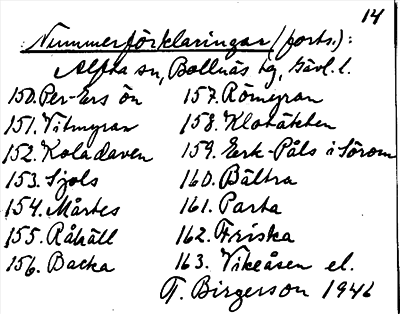 14
Nummerförklaringar (forts.):
Alfta sn, Bollnäs tg, Gävl. l.
150. Per-Ers ön 157. Römyran
151. Vitmyran 158. Klotäkten
152. Koladaven 159. Erk-Påls i Sörom
153. Sjols 160. Bältra
154. Mårtes 161. Parta
155. Råhäll 162. Friska
156. Backa 163. Vikeåsen el.
T. Birgerson 1946